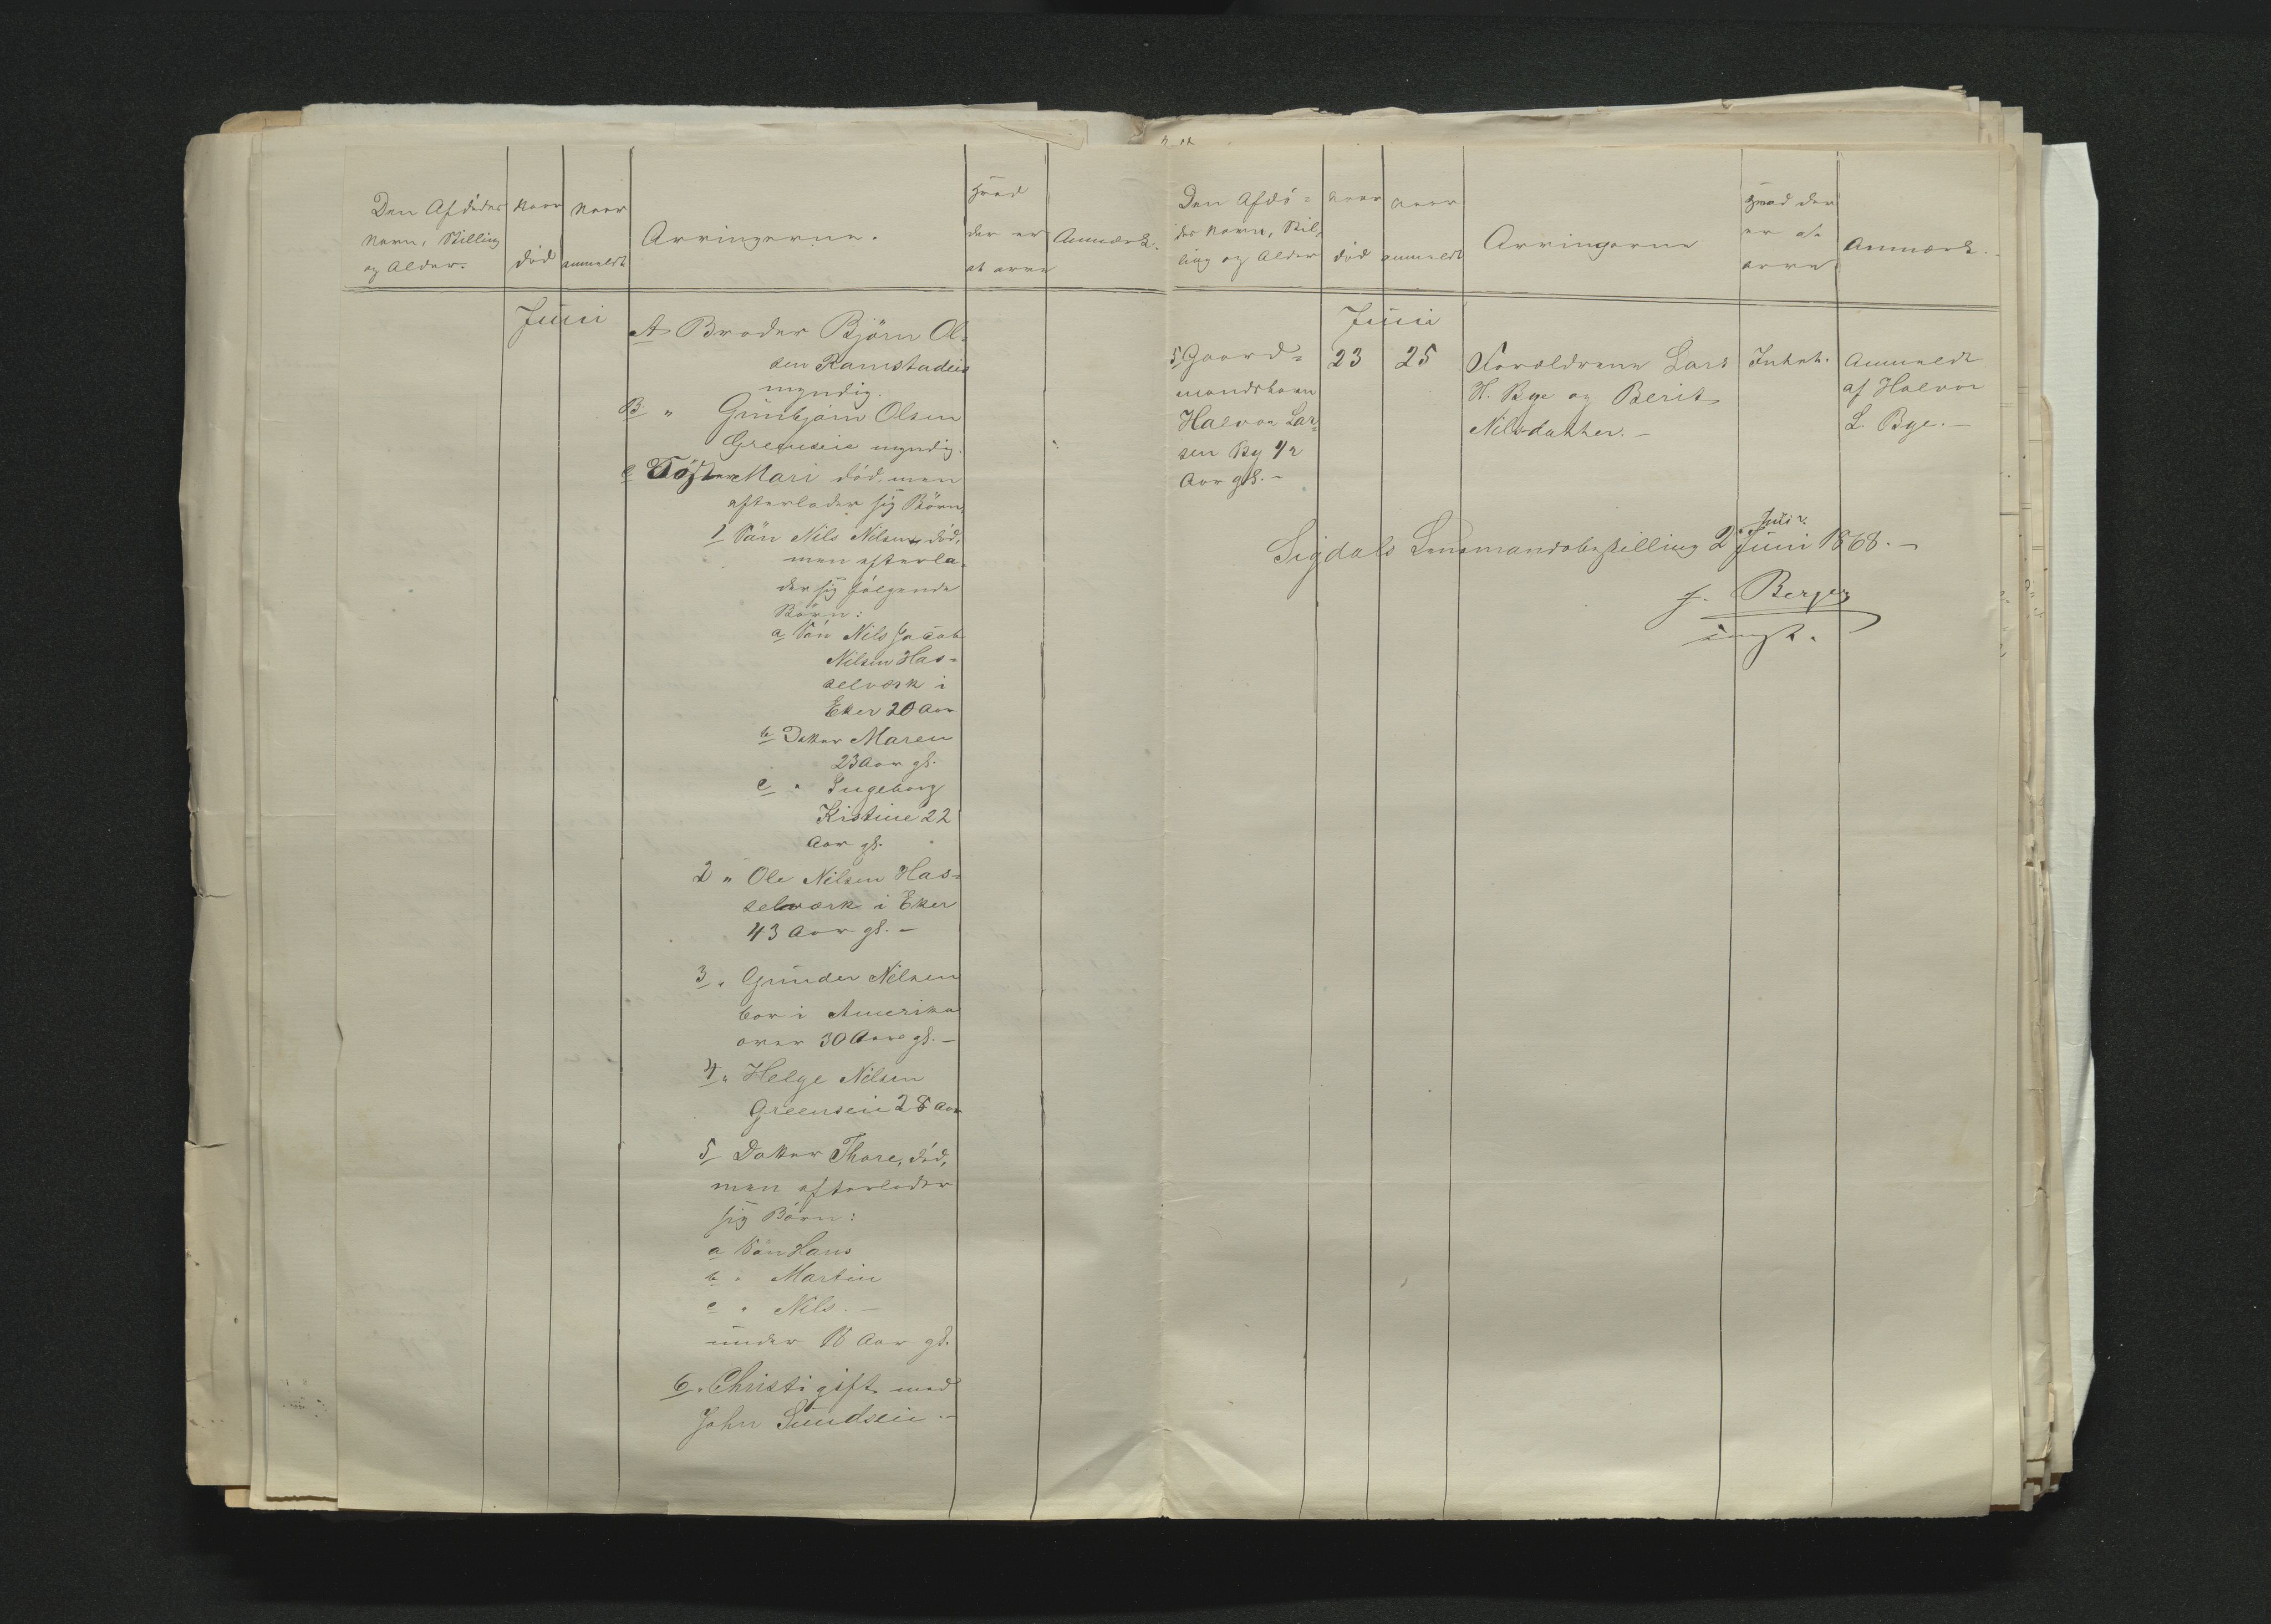 Den Afdødes
Navn, Stilling
og Alder.
Naar
død
Naar
anmeldt
Arvingerne.
Hvad
der er
at arve
Anmærk.
Juni
A Broder Björn Ol-
sen Ramstadeie
myndig.
B " Gunbjörn Olsen
Greenseie myndig.
C Söster Mari död, men
efterlader sig Börn,
1 Sön Nils Nilsen död,
men efterla-
der sig følgende
Börn:
a Sön Nils Jacob
Nilsen Has-
selværk i
Eker 20 Aar
b Datter Maren
23 Aar gl.
c " Ingeborg
Kistine 22
Aar gl.
2 " Ole Nilsen Has-
selværk i Eker
43 Aar gl. -
3 " Gunder Nilsen
bor i Amerika
over 30 Aar gl. -
4 " Helge Nilsen
Greenseie 28 Aar
5 Datter Thore, död,
men efterlader
sig Börn:
a Sön Hans
b " Martin
c " Nils. -
under 18 Aar gl.
6 " Christi gift med
John Sundseie. -
Den Afdö-
des Navn, Stil-
ling og Alder
naar
død
naar
anmeldt
Arvingerne
Hvad der
er at
arve
Anmærk.
Juni
5 Gaard- 23 25 Forældrene Lars Intet. Anmeldt
mandsbarn H. Bye og Berit af Halvor
Halvor Lar- Nilsdatter. - L. Bye. -
sen By 1/2
Aar gl. -
Juli
Sigdals Lensmandsbestilling 2 Juni 1868. -
F. Berger